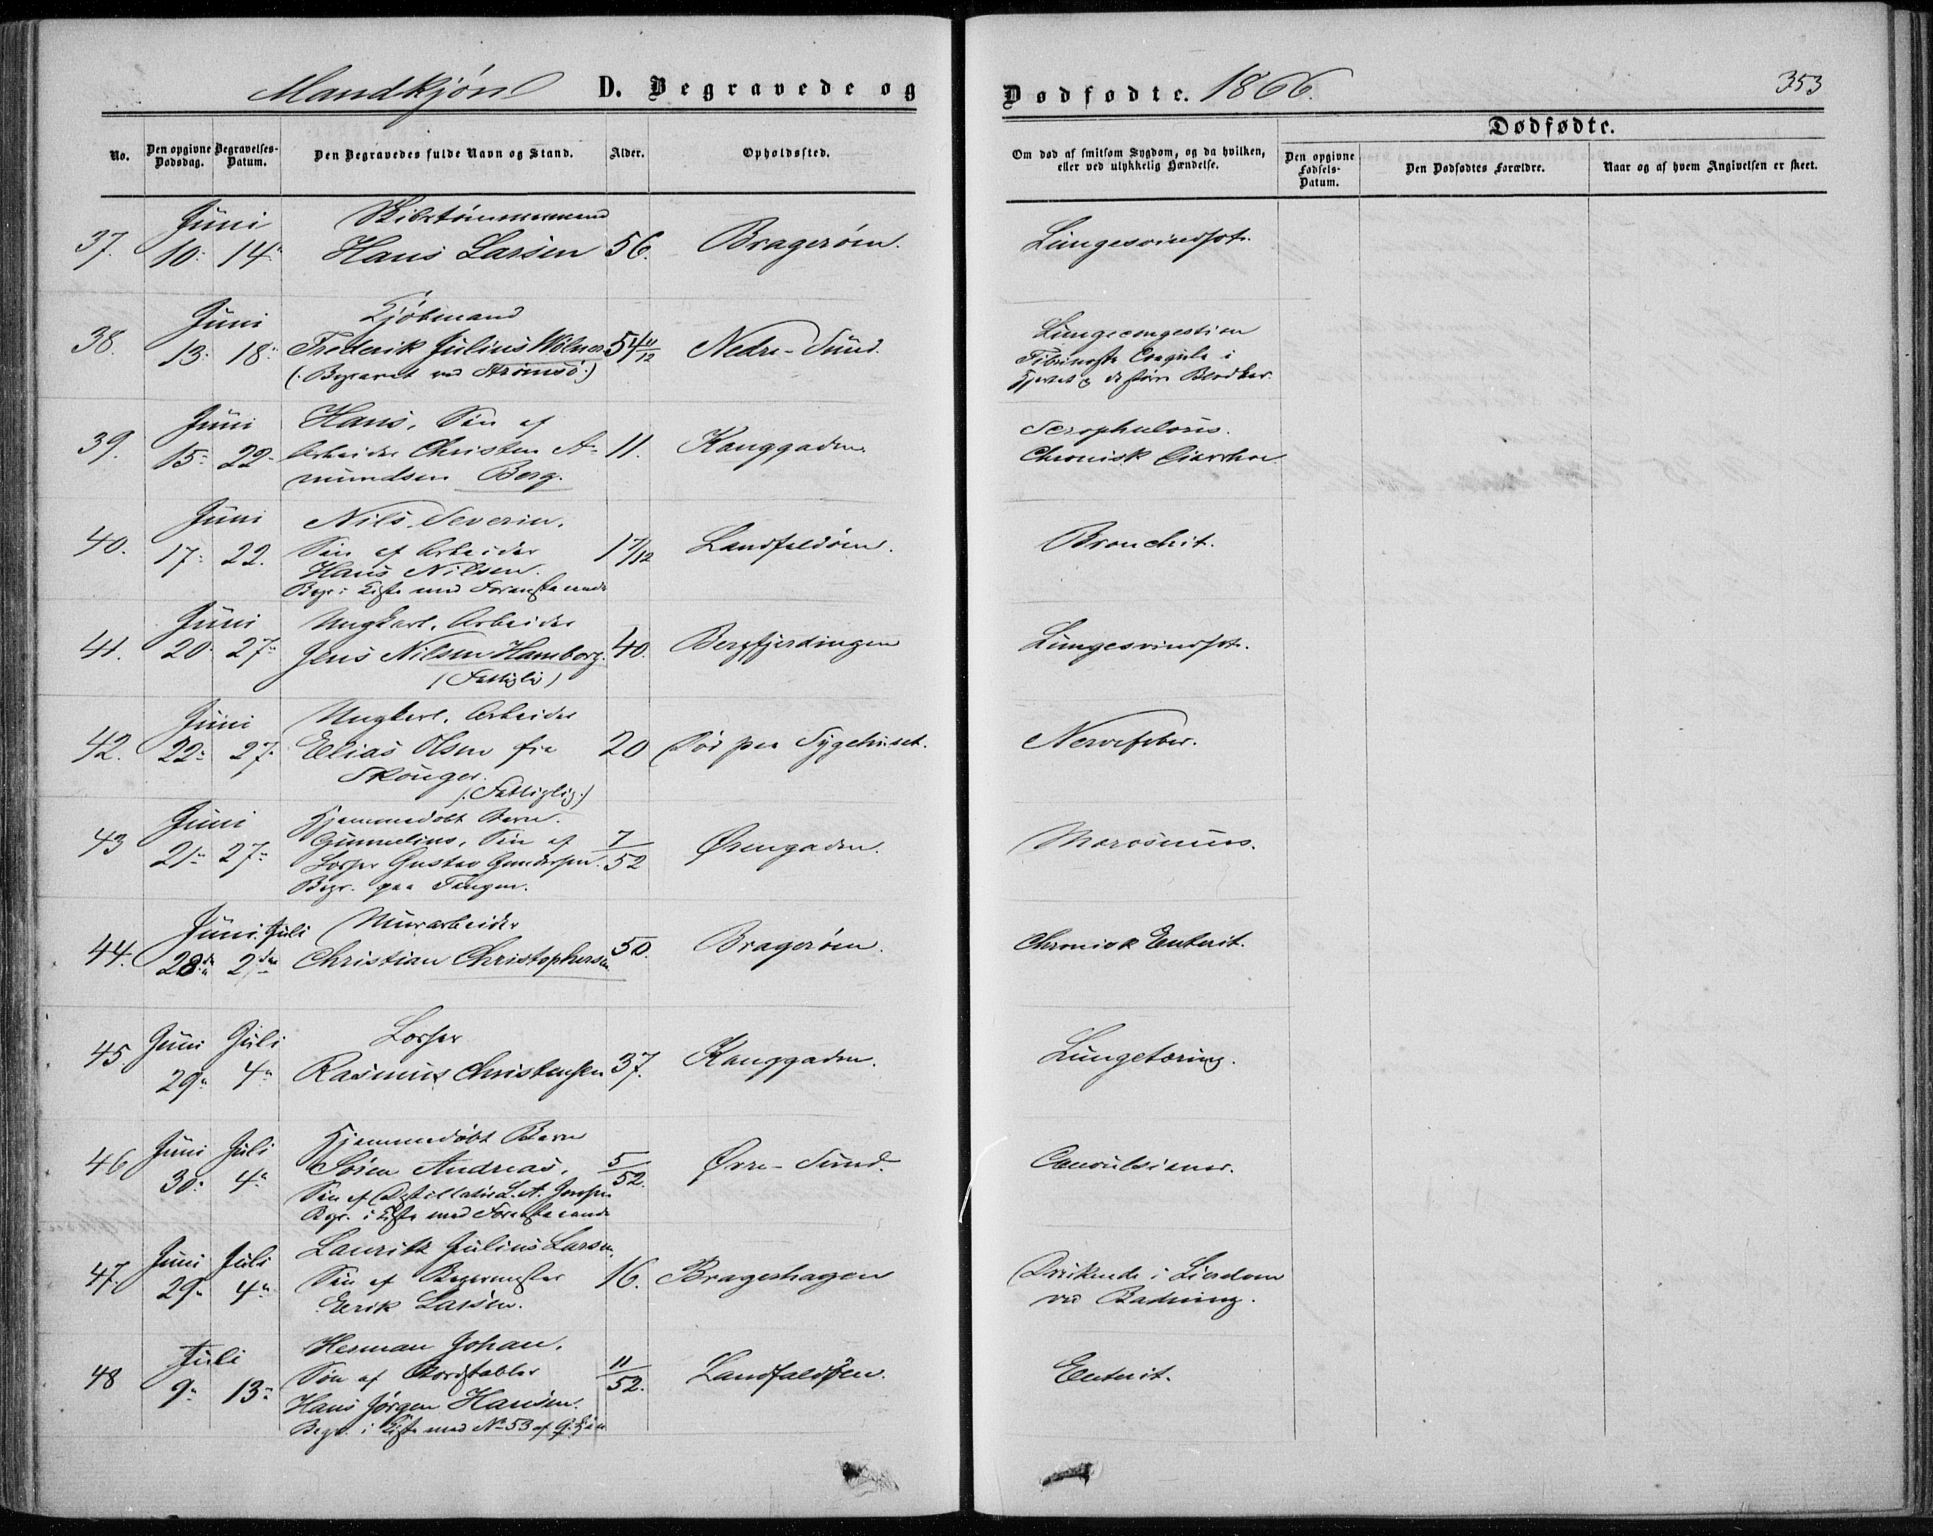 Mandkjøn D. Begravede og Dødfødte. 1866. 353
No. Den opgivne Dødsdag. Begravelses-Datum. Den Begravedes fulde Navn og Stand. Alder. Opholdssted. Om død af smitsom Sygdom, og da hvilken, eller ved ulykkelig Hændelse. Dødfødte. Den opgivne Fødsels-Datum. Den Dødfødtes Forældre. Naar og af hvem Angivelsen er skeet.
Juni Skibstømmermand
37. 10. 14. Hans Larsen 56. Bragerøen. Lungesvindsot.
Juni Kjøbmand Lungecongestion
38. 13. 18. Frederik Julius 54 11/12 Nedre-Sund. Fibrinøse Coagula i
(Begravet ved Strømsø.) Hjertet og de større Blodkar.
Juni Hans, Søn af Scrophuloris.
39. 15. 22. Arbeider Christen A- 11. Konggaden. Chronisk Diarrhoe
mundsen Berg.
Juni Nils Severin,
40. 17. 22. Søn af Arbeider 1 7/12 Landfaldøen. Bronchit.
Hans Nilsen.
Begr. i Kiste med Foranstaaende
Juni Ungkarl, Arbeider
41. 20. 27. Jens Nilsen Hamborg. 40. Bergfjerdingen Lungesvindsot.
(Fattiglig)
Juni Ungkarl, Arbeider
42. 22. 27. Elias Olsen fra 20 Død paa Sygehuset. Nervefeber.
Skouger.
(Fattiglig.)
Juni Hjemmedøbt Barn.
43 21. 27. Gunnelius, Søn af 7/52 Ørengaden. Marasmus.
Losser Gustav Gundersen.
Begr. paa Tangen.
Juni Juli Murarbeider
44. 28de 2den Christian Christophersen 50. Bragerøen. Chronisk Enterit.
Juni Juli Losser
45. 29. 4. Rasmus Christensen 37. Konggaden. Lungetæring.
Juni Juli Hjemmedøbt Barn
46 30. 4. Søren Andreas, 5/52. Øvre-Sund. Convulsioner.
Søn af Destillatør L. A. Jensen
Begr. i Kiste med Foranstaaende
Juni Juli Lauritz Julius Larsen,
47. 29. 4. Søn af Bagermester 16. Brageshagen Druknede i Lierelven
Eerik Larsen. ved Badning.
Juli Herman Johan,
48 9. 13. Søn af Bordstabler 11/52. Landfaldøen. Enterit.
Hans Jørgen Hansen.
Begr. i Kiste med No 53 af Q. Kjøn